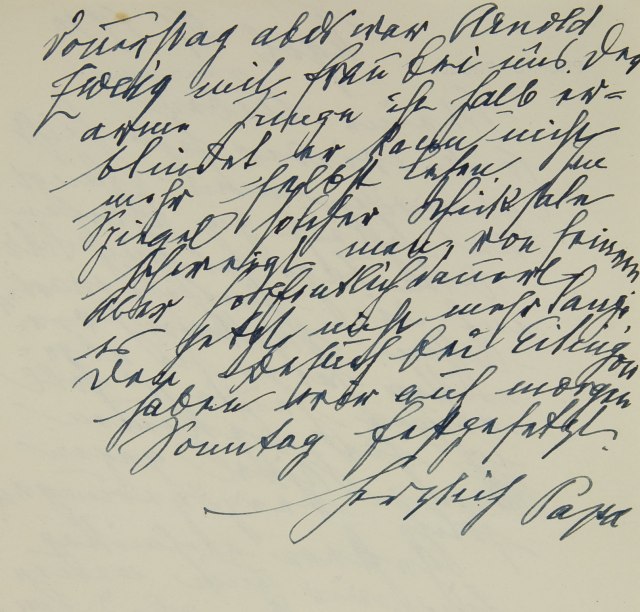 Donnerstag abds war Arnold
Zweig mit Frau bei uns. Der
arme Junge ist halb er=
blindet er kann nicht
mehr selbst lesen. Im
Spiegel solcher Schicksale
schweigt man von seinem
aber hoffentlich dauert
es jetzt nicht mehr lange
Den Besuch bei Eitingon
haben wir auf morgen
Sonntag festgesetzt.
Herzlich Papa